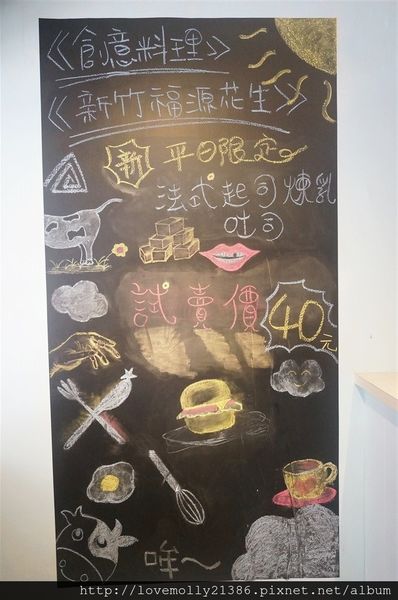 《創意料理》
《新竹福源花生》
新 平日限定
法式起司煉乳
吐司
試賣價 40元
哞～
http://lovemolly21386.pixnet.net/album